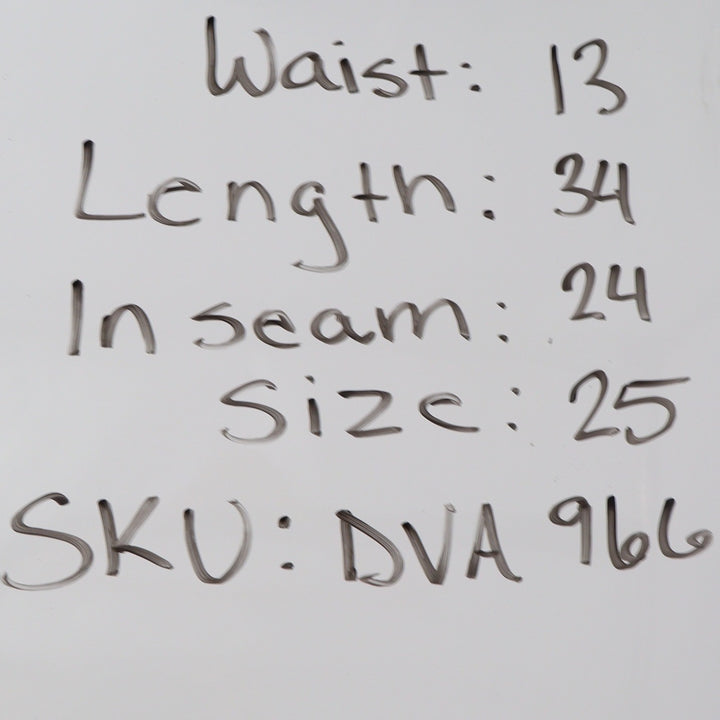 Waist: 13
Length: 34
In seam: 24
Size: 25
SKU: DVA 966